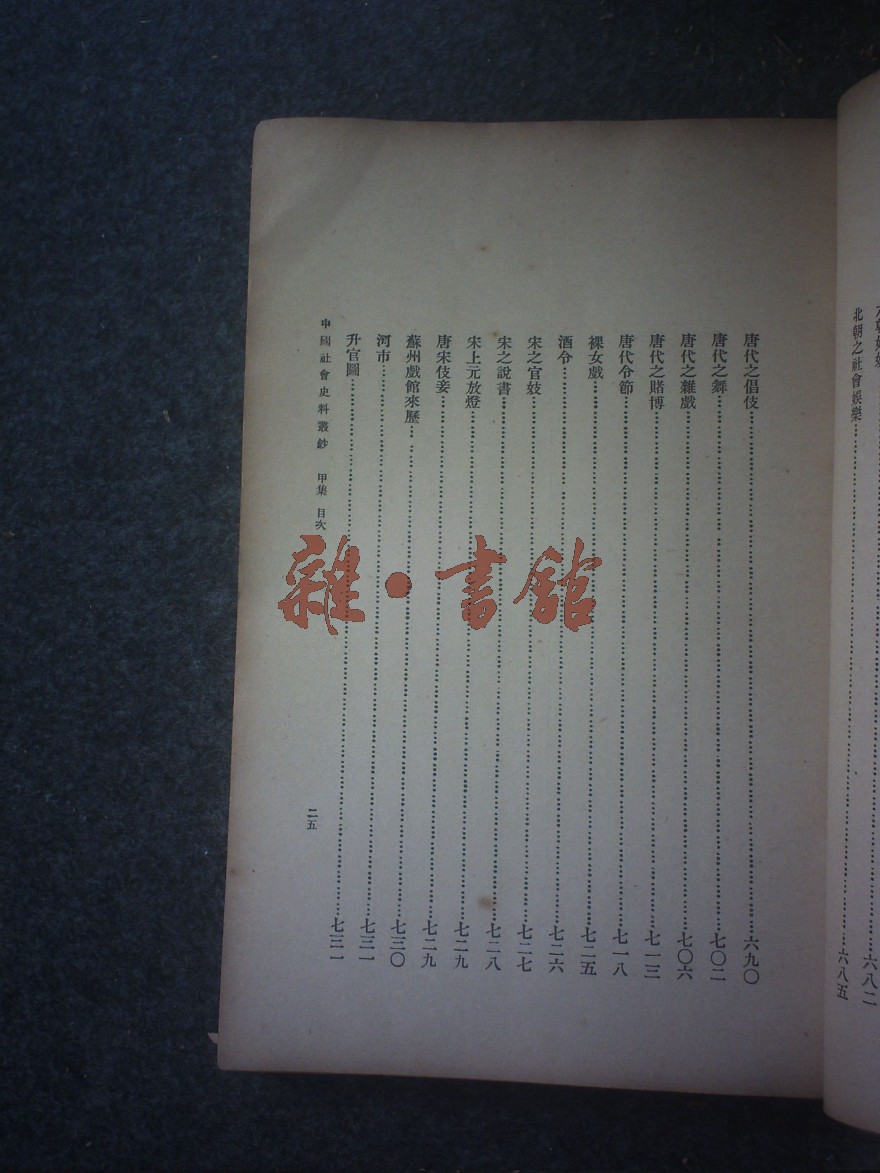 北朝之社會娛樂……六八五
六八二
唐代之倡伎……六九〇
唐代之舞……七〇二
唐代之雜戲……七〇六
唐代之賭博……七一三
唐代令節……七一八
裸女戲……七二五
酒令……七二六
宋之官妓……七二七
宋之說書……七二八
宋上元放燈……七二九
唐宋伎妾……七二九
蘇州戲館來歷……七三〇
河市……七三一
升官圖……七三一
中國社會史料叢鈔 甲集 目次
二五
雜·書館